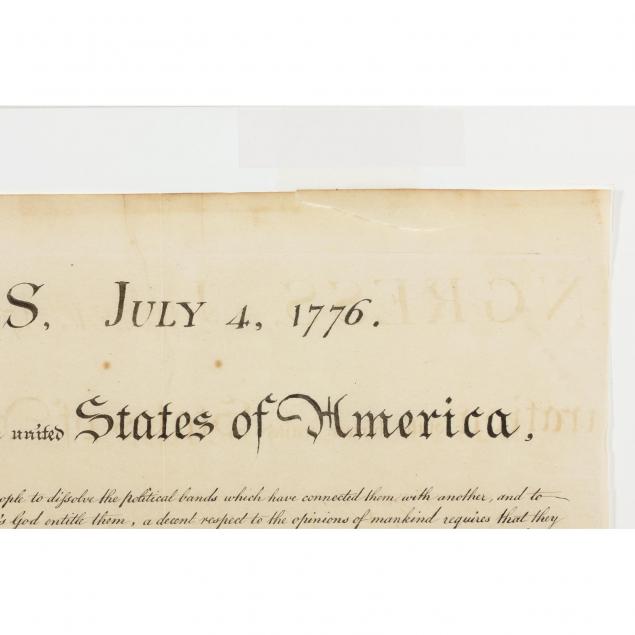 S, JULY 4, 1776.
united States of America,
ople to dissolve the political bands which have connected them with another, and to
's God entitle them, a decent respect to the opinions of mankind requires that they